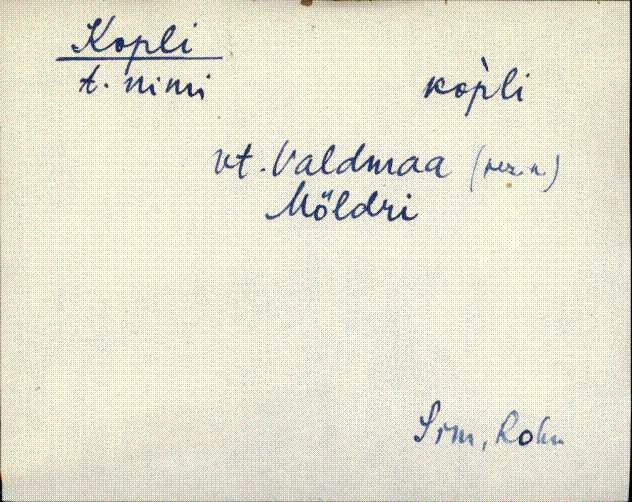 Kopli
t. nimi
kop̀li
vt. Valdmaa (per. n.)
Möldri
Sim, Rohu